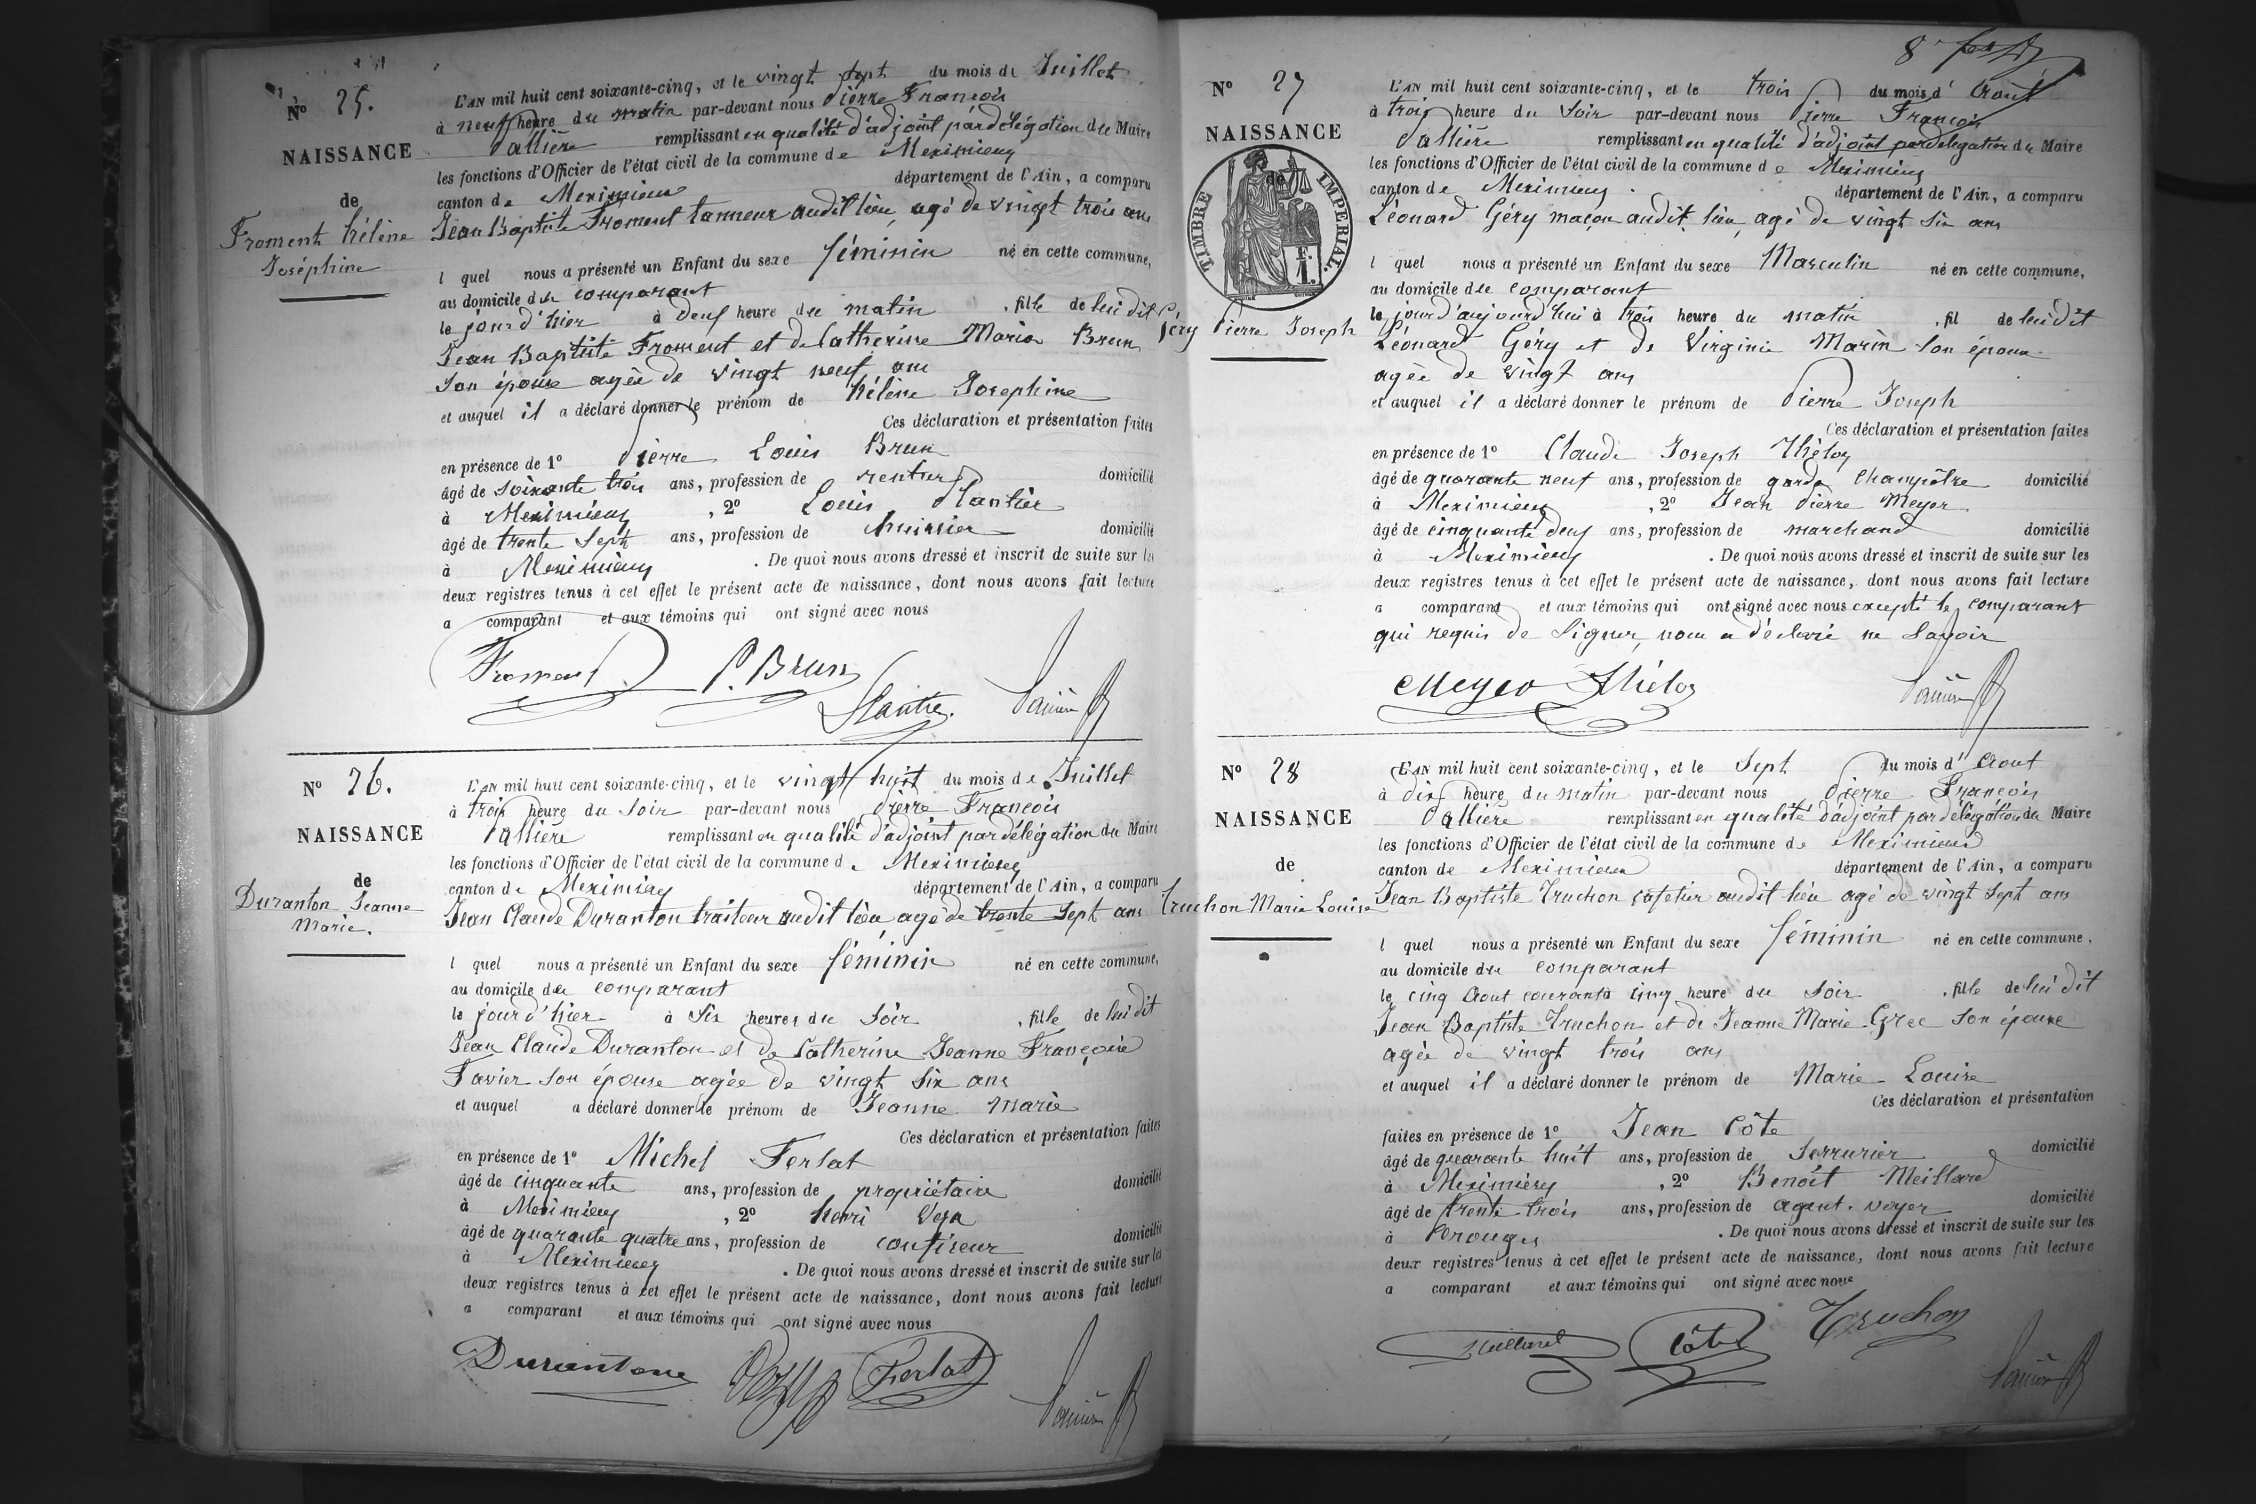 N° 25.
NAISSANCE
de
Froment hélène
Joséphine
L'AN mil huit cent soixante-cinq, et le vingt sept du mois de Juillet
à neuf heure du matin par-devant nous Pierre François
Pallière remplissant en qualité d'adjoint par délégation du Maire
les fonctions d'Officier de l'état civil de la commune de Meximieux
canton de Meximieux département de l'Ain, a comparu
Jean Baptiste Froment tanneur audit lieu, agé de vingt trois ans
l quel nous a présenté un Enfant du sexe féminin né en cette commune,
au domicile du comparant
le jour d'hier à deux heure du matin , fille de lui dit
Jean Baptiste Froment et de Catherine Marie Brun
son épouse agée de vingt neuf ans
et auquel il a déclaré donner le prénom de hélène Josephine
Ces déclaration et présentation faites
en présence de 1° Pierre Louis Brun
âgé de soixante trois ans, profession de rentier domicilié
à Meximieux , 2° Louis
âgé de trente sept ans, profession de huissier domicilié
à Meximieux . De quoi nous avons dressé et inscrit de suite sur les
deux registres tenus à cet effet le présent acte de naissance, dont nous avons fait lecture
a comparant et aux témoins qui ont signé avec nous
Froment P. Brun Pallière
N° 26.
NAISSANCE
de
Duranton Jeanne
Marie.
L'AN mil huit cent soixante-cinq, et le vingt huit du mois de Juillet
à trois heure du soir par-devant nous Pierre François
Pallière remplissant en qualité d'adjoint par délégation du Maire
les fonctions d'Officier de l'état civil de la commune de Meximieux
canton de Meximieux département de l'Ain, a comparu
Jean Claude Duranton traiteur audit lieu, agé de trente sept ans
l quel nous a présenté un Enfant du sexe féminin né en cette commune,
au domicile du comparant
le jour d'hier à six heures du soir , fille de lui dit
Jean Claude Duranton et de Catherine Jeanne Françoise
Favier son épouse agée de vingt six ans
et auquel a déclaré donner le prénom de Jeanne Marie
Ces déclaration et présentation faites
en présence de 1° Michel Ferlat
âgé de cinquante ans, profession de propriétaire domicilié
à Meximieux , 2° henri
âgé de quarante quatre ans, profession de confiseur domicilié
à Meximieux . De quoi nous avons dressé et inscrit de suite sur les
deux registres tenus à cet effet le présent acte de naissance, dont nous avons fait lecture
a comparant et aux témoins qui ont signé avec nous
Duranton Ferlat Pallière
N° 27
NAISSANCE
de
TIMBRE IMPERIAL.
F. 1.
Géry Pierre Joseph
L'AN mil huit cent soixante-cinq, et le trois du mois d'Août
à trois heure du soir par-devant nous Pierre François
Pallière remplissant en qualité d'adjoint par délégation du Maire
les fonctions d'Officier de l'état civil de la commune de Meximieux
canton de Meximieux . département de l'Ain, a comparu
Léonard Géry maçon audit lieu, agé de vingt six ans
l quel nous a présenté un Enfant du sexe Masculin né en cette commune,
au domicile du comparant
le jour d'aujourd'hui à trois heure du matin , fil de lui dit
Léonard Géry et de Virginie Marin son épouse
agée de vingt ans
et auquel il a déclaré donner le prénom de Pierre Joseph
Ces déclaration et présentation faites
en présence de 1° Claude Joseph Théloz
âgé de quarante neuf ans, profession de garde champêtre domicilié
à Meximieux , 2° Jean Pierre Meyer
âgé de cinquante deux ans, profession de marchand domicilié
à Meximieux . De quoi nous avons dressé et inscrit de suite sur les
deux registres tenus à cet effet le présent acte de naissance, dont nous avons fait lecture
a comparant et aux témoins qui ont signé avec nous excepté le comparant
qui requis de signer, nous a déclaré ne savoir
Meyer Théloz Pallière
N° 28
NAISSANCE
de
Truchon Marie Louise
L'AN mil huit cent soixante-cinq, et le sept du mois d'Aout
à dix heure du matin par-devant nous Pierre François
Pallière remplissant en qualité d'adjoint par délégation du Maire
les fonctions d'Officier de l'état civil de la commune de Meximieux
canton de Meximieux département de l'Ain, a comparu
Jean Baptiste Truchon cafetier audit lieu agé de vingt sept ans
l quel nous a présenté un Enfant du sexe féminin né en cette commune,
au domicile du comparant
le cinq Aout courant à cinq heure du soir , fille de lui dit
Jean Baptiste Truchon et de Jeanne Marie Grec son épouse
agée de vingt trois ans
et auquel il a déclaré donner le prénom de Marie-Louise
Ces déclaration et présentation
faites en présence de 1° Jean Côte
âgé de quarante huit ans, profession de serrurier domicilié
à Meximieux , 2° Benoit Meillard
âgé de trente trois ans, profession de agent-voyer domicilié
à Perouges . De quoi nous avons dressé et inscrit de suite sur les
deux registres tenus à cet effet le présent acte de naissance, dont nous avons fait lecture
a comparant et aux témoins qui ont signé avec nous
Meillard Côte Truchon Pallière